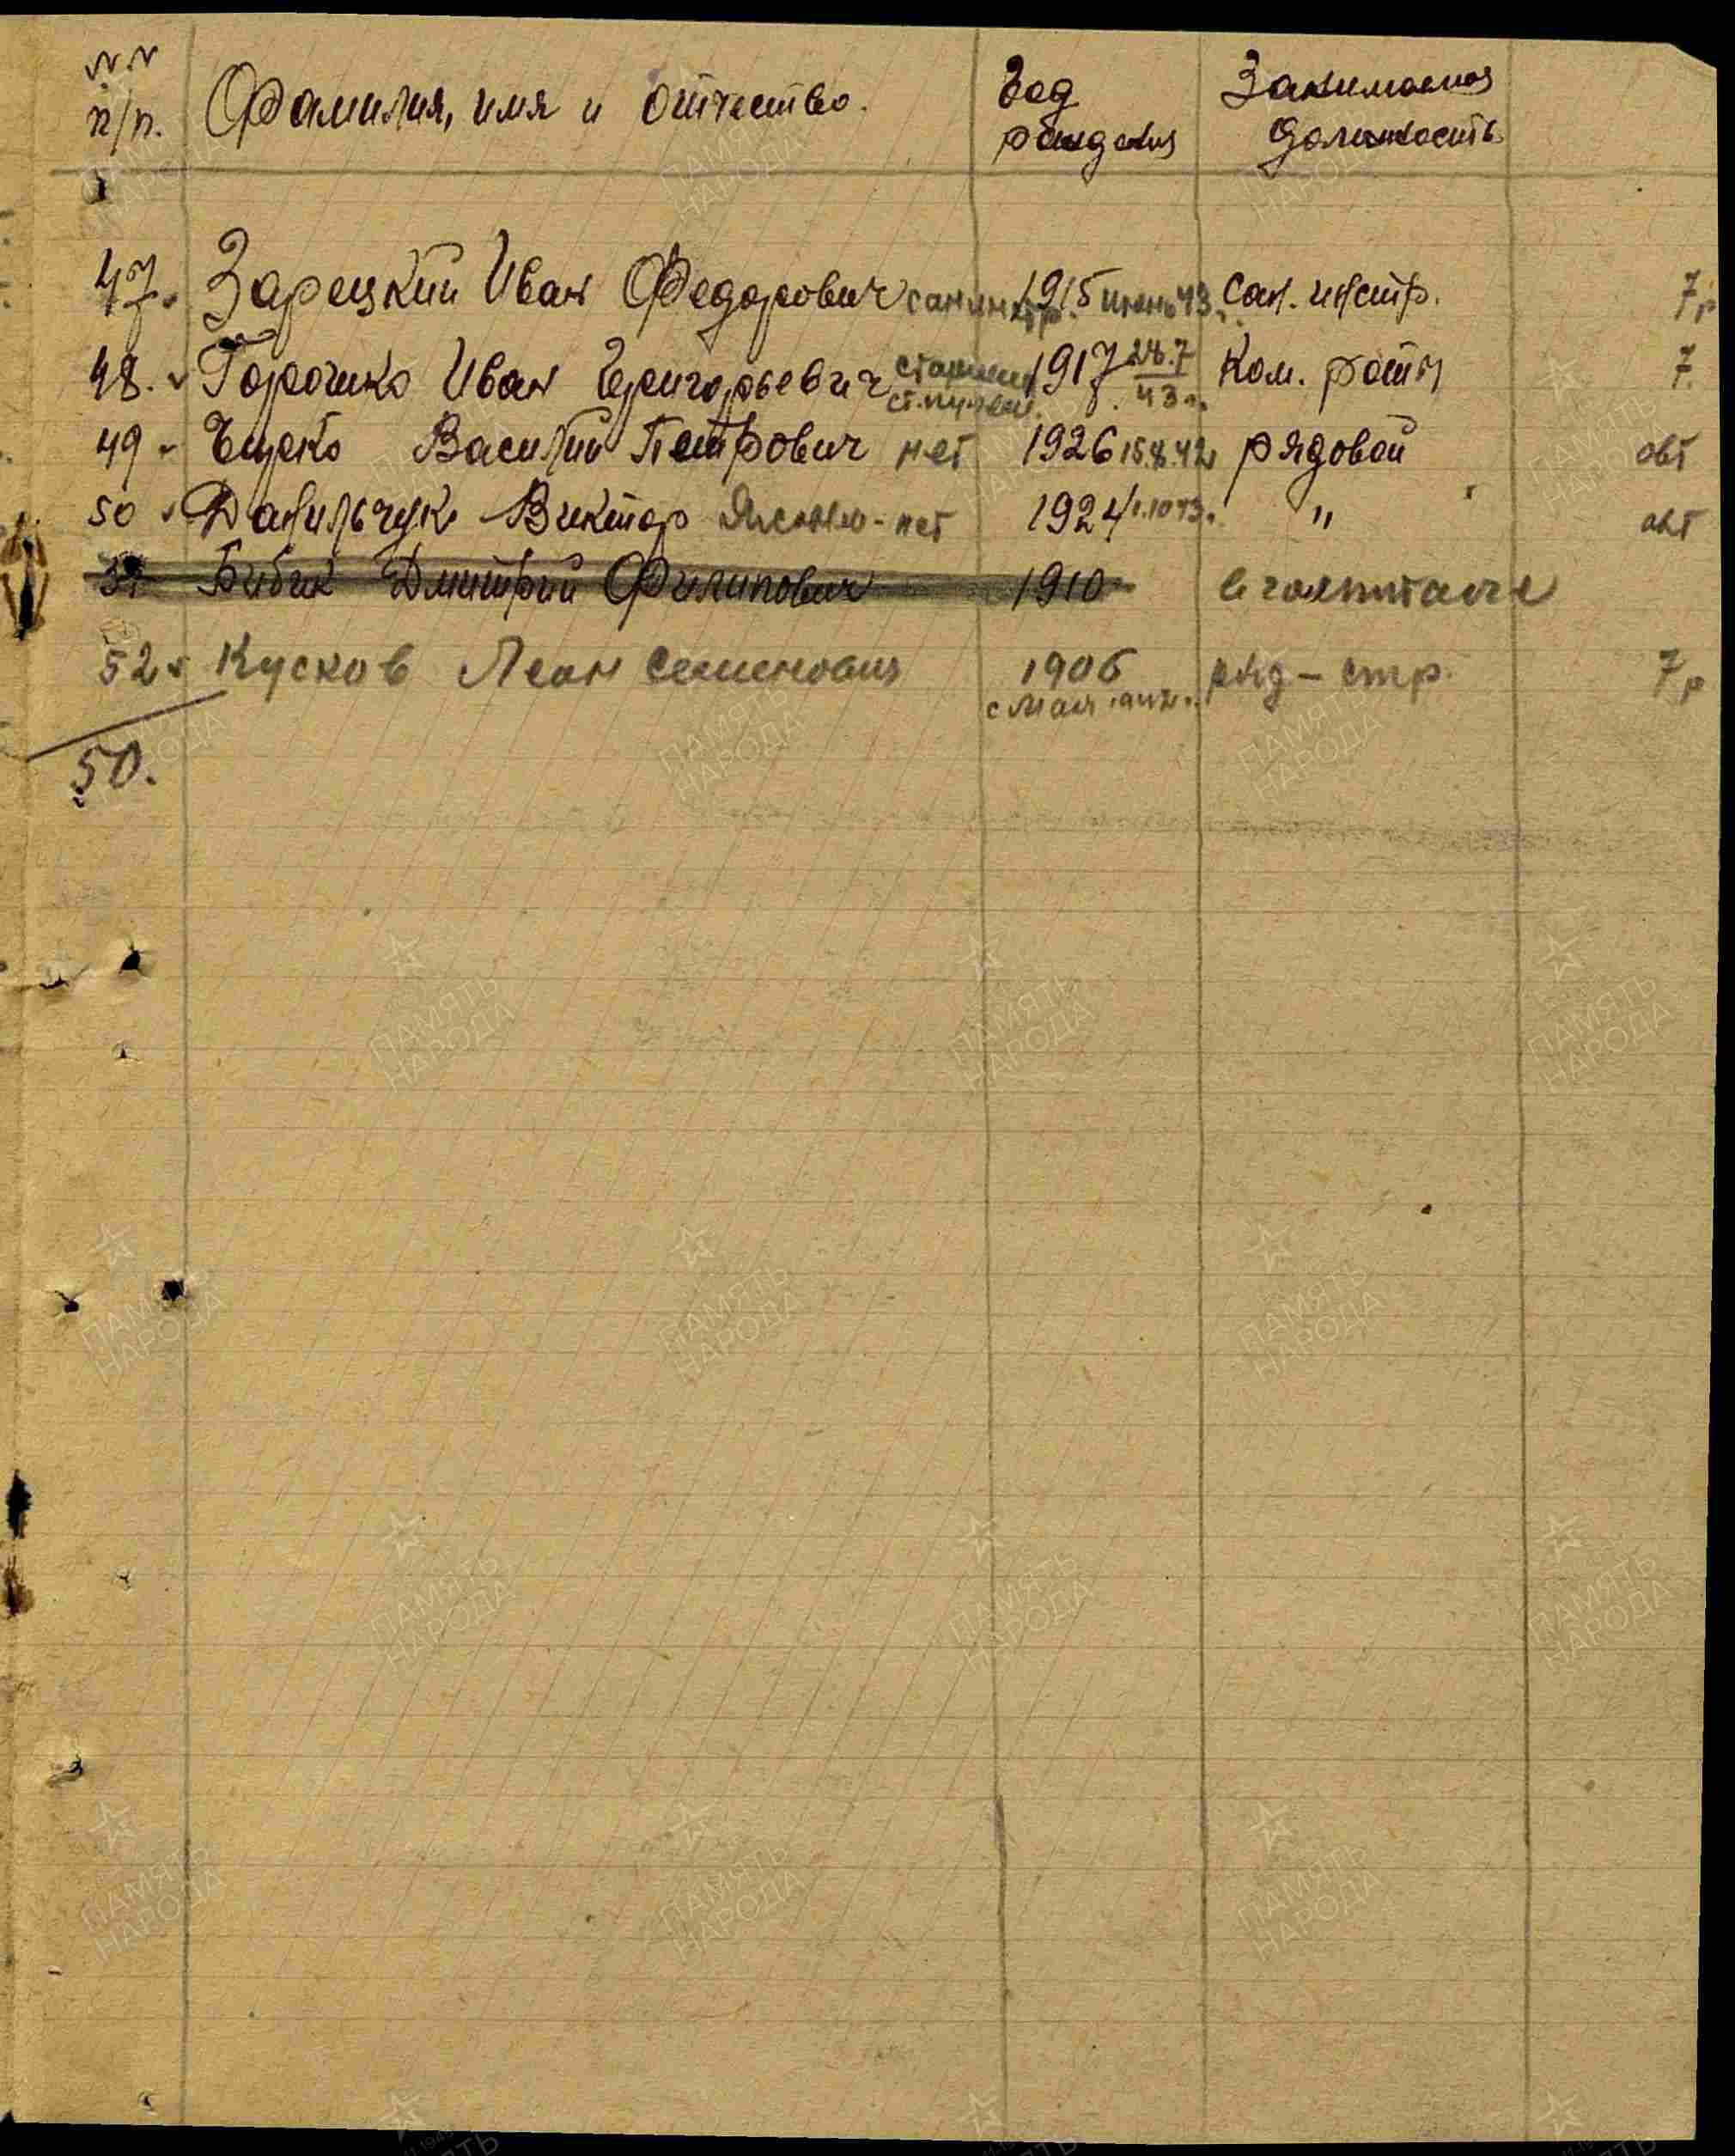 NN п/п. Фамилия, имя и отчество. Год рождения Занимаемая должность
47. Зарецкий Иван Федорович сан.инстр. 1915 июнь 43г. сан. инстр. 7р
48. Горошко Иван Григорьевич старшина 1917 28.7 43г. Ком. роты 7.
49 Василий Петрович нет 1926 15.8.42г рядовой авт
50 Данильчук Виктор нет 1924 1.10 43г. " авт
51 Бибик Дмитрий Филипович 1910 в госпитале
52. Кусков Леон Семенович 1906 ряд - стр. 7р
с мая 1942г.
50.
ПАМЯТЬ НАРОДА